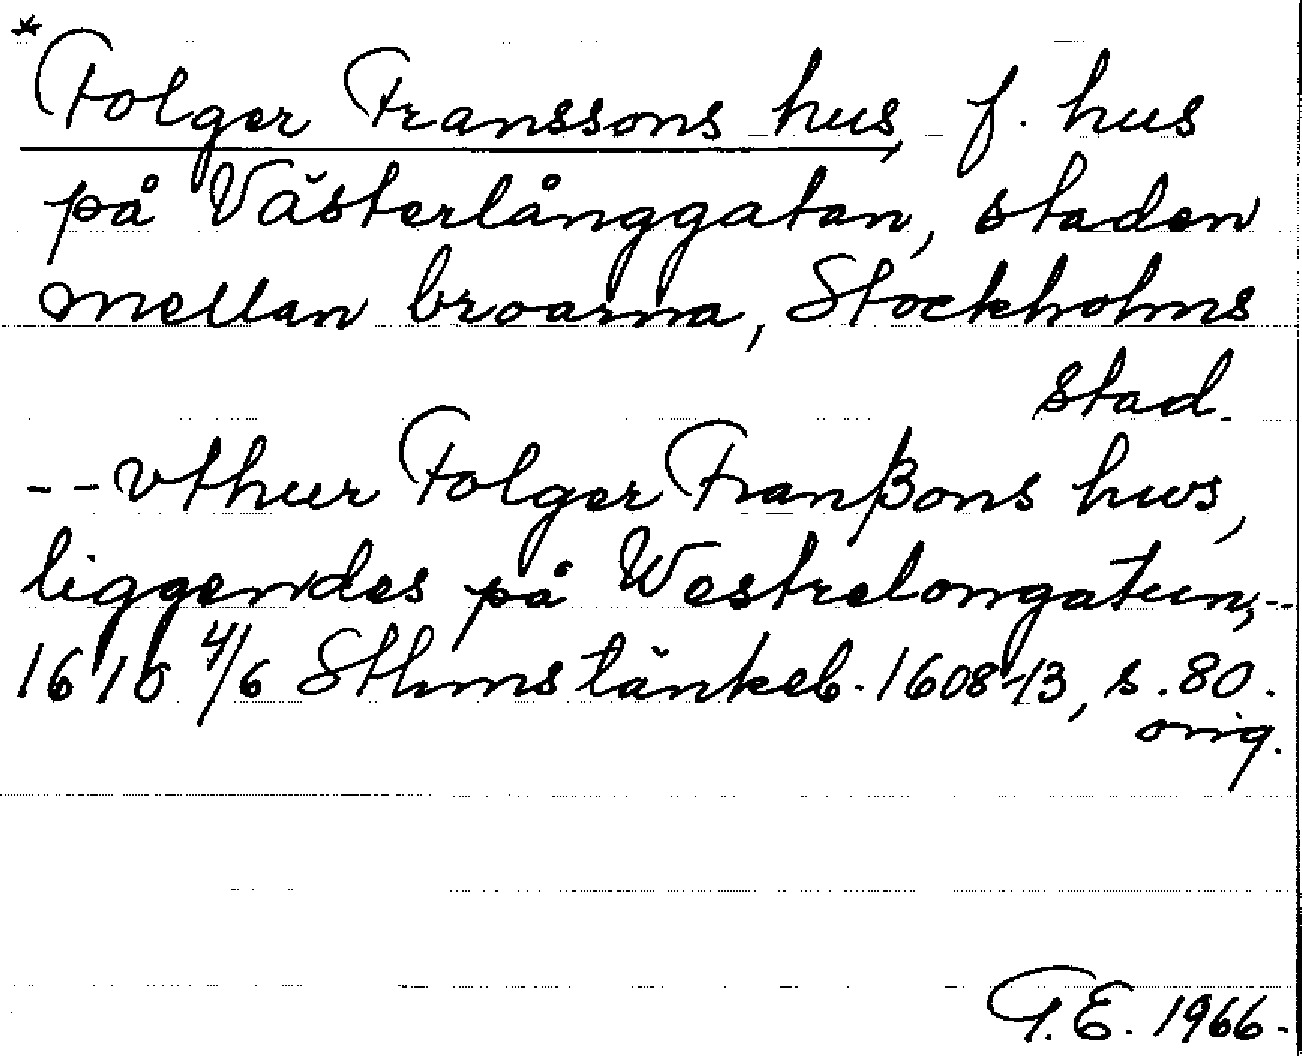 * Folger Franssons hus, f. hus
på Västerlånggatan, staden
mellan broarna, Stockholms
stad.
-- vthur Folger Franßons hws,
liggendes på Westrelongatun, --
1610 4/6 Sthms tänkeb. 1608-13, s. 80.
orig.
G.E. 1966.